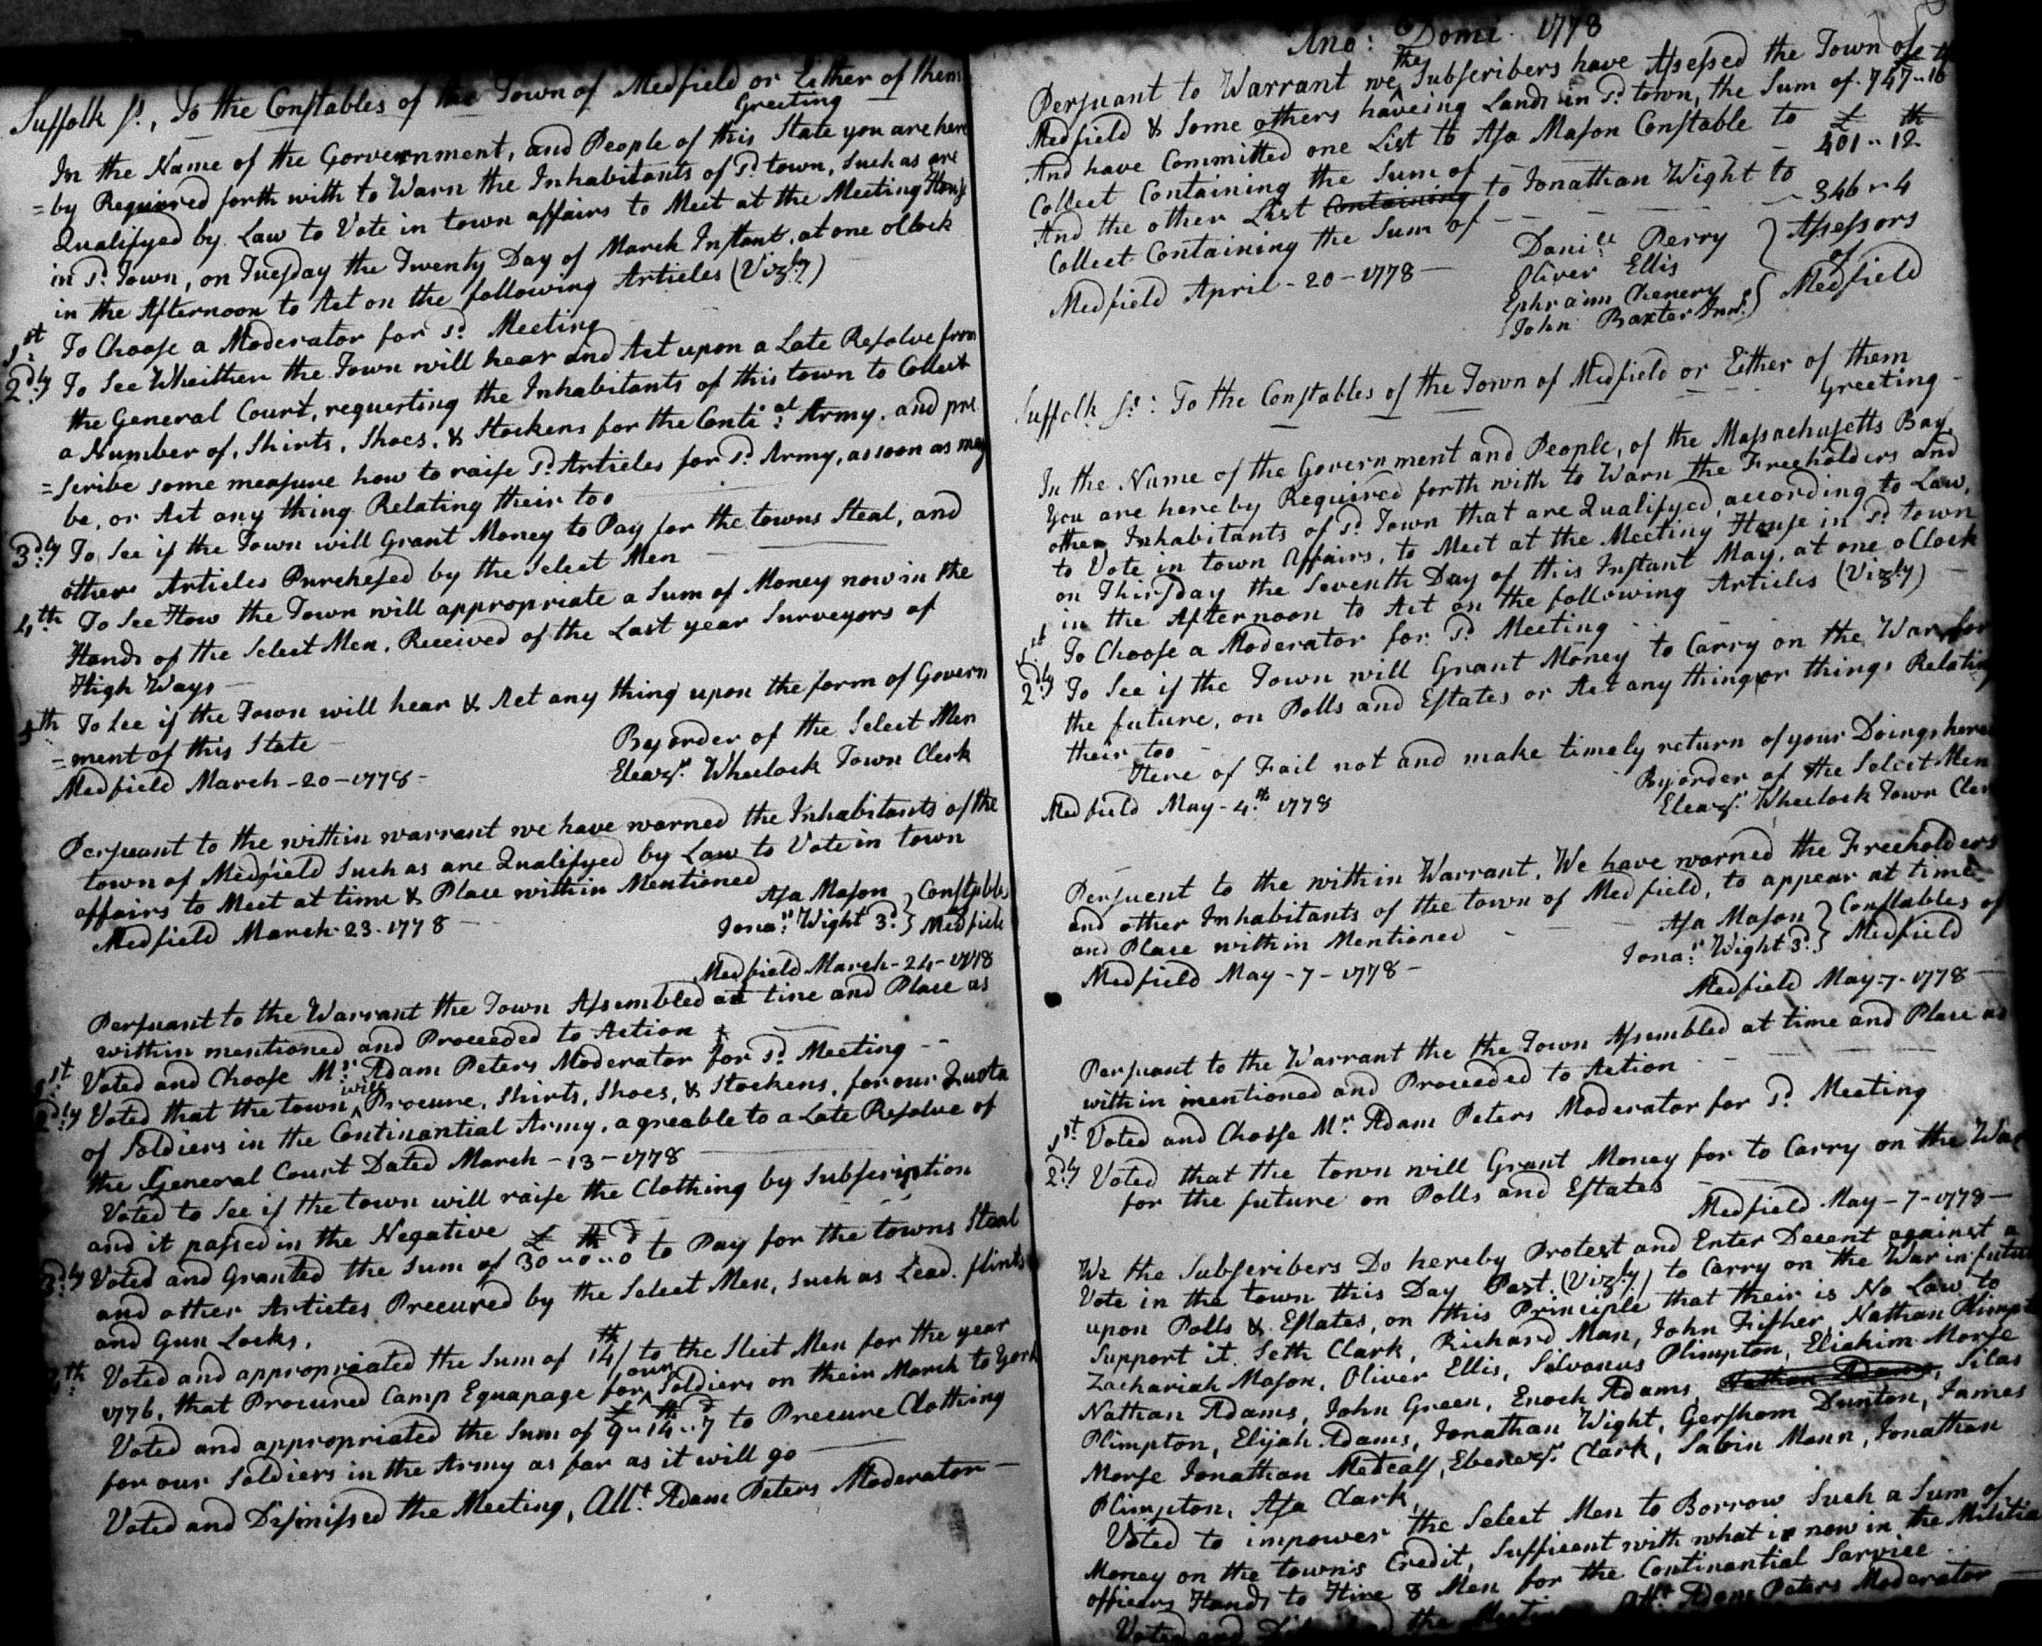 Suffolk ss. To the Constables of the Town of Medfield or Either of them
Greeting
In the Name of the Gorvernment, and People of this State you are here
=by Required forth with to Warn the Inhabitants of sd. town, Such as are
Qualifyed by Law to Vote in town affairs to Meet at the Meeting House
in sd. Town, on Tuesday the Twenty Day of March Instant, at one oClock
in the Afternoon to Act on the following Articles (Vizly)
1st. To Choose a Moderator for sd. Meeting
2dly To See Wheither the Town will hear and Act upon a Late Resolve from
the General Court, requesting the Inhabitants of this town to Collect
a Number of, Shirts, Shoes, & Stockens for the Contial. Army, and pre
=scribe some measure how to raise sd. Articles for sd. Army, as soon as may
be, or Act any thing Relating their too
3dly To See if the Town will Grant Money to Pay for the towns Steal, and
other Articles Purchesed by the Select Men
4th To See How the Town will appropriate a Sum of Money now in the
Hands of the Select Men, Received of the Last year Surveyors of
High Ways
5th To See if the Town will hear & Act any thing upon the form of Govern
=ment of this State
By order of the Select Men
Medfield March-20-1778-
Eleazr. Wheelock Town Clerk
Persuant to the within warrant we have warned the Inhabitants of the
town of Medfield Such as are Qualifyed by Law to Vote in town
affairs to Meet at time & Place within Mentioned
Asa Mason } Constables
Medfield March-23-1778-
Jonan. Wight 3d. } Medfield
Medfield March-24-1778
Persuant to the Warrant the Town Assembled at time and Place as
within mentioned and Proceeded to Action
1st. Voted and Choose Mr. Adam Peters Moderator for sd. Meeting --
2dly Voted that the town will Procure, Shirts, Shoes, & Stockens, for our Quota
of Soldiers in the Continantial Army, agreable to a Late Resolve of
the General Court Dated March-13-1778
Voted to See if the town will raise the Clothing by Subscription
and it passed in the Negative
3dly Voted and Granted the Sum of £30..0..0 to Pay for the towns Steal
and other Articles Precured by the Select Men, such as Lead, flints
and Gun Locks,
4th Voted and appropriated the Sum of 14/ to the Slect Men for the year
1776, that Procured Camp Equapage for our Soldiers on their March to York
Voted and appropriated the Sum of £9..14..7 to Precure Clothing
for our Soldiers in the Army as far as it will go
Voted and Dismissed the Meeting, Attt. Adam Peters Moderator
Ano: Domi. 1778
Persuant to Warrant we the Subscribers have Assessed the Town of
Medfield & Some others haveing Lands in sd. town, the Sum of 747..16
And have Committed one List to Asa Mason Constable to
Collect Containing the Sum of £401..12
And the other List Containing to Jonathan Wight to
Collect Containing the Sum of -- 346..4
Danill Perry } Assessors
Medfield April-20-1778-
Oliver Ellis of
Ephraim Chenery Medfield
John Baxter Junr. }
Suffolk ss: To the Constables of the Town of Medfield or Either of them
Greeting
In the Name of the Government and People, of the Massachusetts Bay,
You are here by Required forth with to Warn the Freeholders and
other Inhabitants of sd. Town that are Qualifyed, according to Law,
to Vote in town Affairs, to Meet at the Meeting House in sd. town
on Thirsday the Seventh Day of this Instant May, at one oClock
in the Afternoon to Act on the following Articles (Vizly)
1st To Choose a Moderator for sd. Meeting
2dly To See if the Town will Grant Money to Carry on the War, for
the future, on Polls and Estates or Act any thing or things Relating
their too
Here of Fail not and make timely return of your Doings here
By order of the Select Men
Medfield May-4th. 1778
Eleazr. Wheelock Town Cler
Persuent to the within Warrant, We have warned the Freeholders
and other Inhabitants of the town of Medfield, to appear at time
and Place within Mentioned
Asa Mason } Constables of
Medfield May-7-1778-
Jonan. Wight 3d. } Medfield
Medfield May-7-1778-
Persuant to the Warrant the the Town Assembled at time and Place as
within mentioned and Proceeded to Action
1st. Voted and Choose Mr. Adam Peters Moderator for sd. Meeting
2dly Voted that the town will Grant Money for to Carry on the War
for the future on Polls and Estates
Medfield May-7-1778-
We the Subscribers Do hereby Protest and Enter Decent against a
Vote in the town this Day Past. (Vizly) to Carry on the War in future
upon Polls & Estates, on this Principle that their is No Law to
Support it. Seth Clark, Richard Man, John Fisher, Nathan Plimpt
Zachariah Mason, Oliver Ellis, Silvanus Plimpton, Eliakim Morse
Nathan Adams, John Green, Enoch Adams, Nathan Adams, Silas
Plimpton, Elijah Adams, Jonathan Wight, Gershom Dunton, James
Morse Jonathan Metcalf, Ebenezr. Clark, Sabin Mann, Jonathan
Plimpton, Asa Clark,
Voted to impower the Select Men to Borrow Such a Sum of
Money on the town's Credit, Sufficent with what is now in the Militia
officers Hands to Hire 8 Men for the Continantial Sarvice
Voted and the Meeting Attt. Adam Peters Moderator